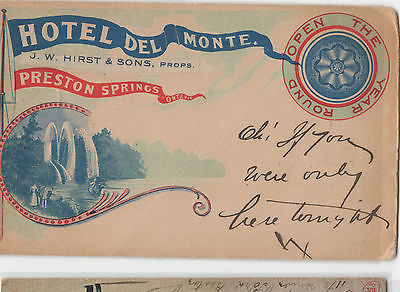 HOTEL DEL MONTE.
J. W. HIRST & SONS, PROPS.
PRESTON SPRINGS
ONTARIO
OPEN THE YEAR ROUND
Oh! If you
were only
here tonight
X